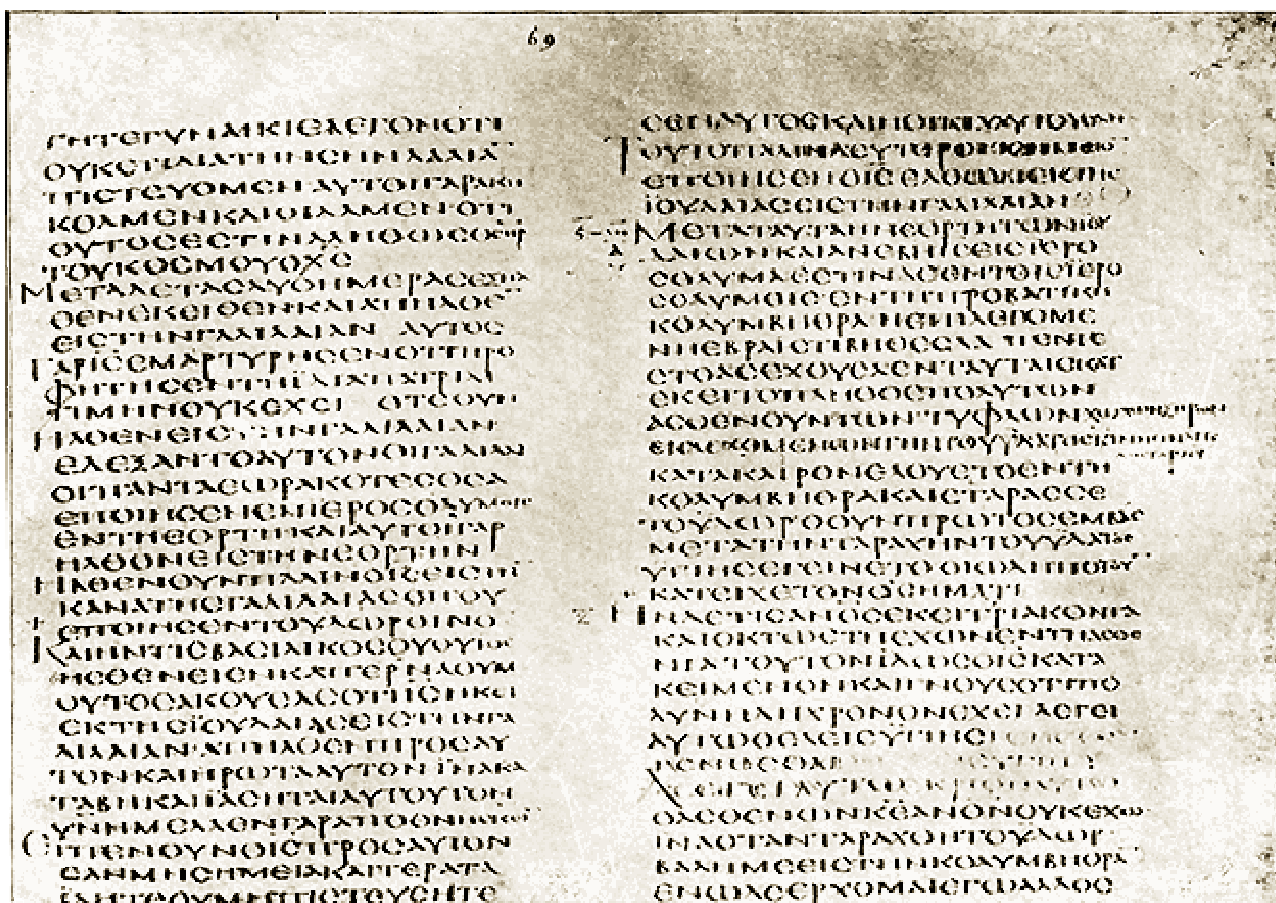 69
ΤΗΤΕΓΥΝΑΙΚΙΕΛΕΓΟΝΟΤΙ
ΟΥΚΕΤΙΔΙΑΤΗΝϹΗΝΛΑΛΙΑ
ΠΙϹΤΕΥΟΜΕΝΑΥΤΟΙΓΑΡΑΚΗ
ΚΟΑΜΕΝΚΑΙΟΙΔΑΜΕΝΟΤΙ
ΟΥΤΟϹΕϹΤΙΝΑΛΗΘΩϹΟϹΩΤΗΡ
ΤΟΥΚΟϹΜΟΥΟΧϹ
ΜΕΤΑΔΕΤΑϹΔΥΟΗΜΕΡΑϹΕΞΗΛ
ΘΕΝΕΚΕΙΘΕΝΚΑΙΑΠΗΛΘΕ
ΕΙϹΤΗΝΓΑΛΙΛΑΙΑΝ ΑΥΤΟϹ
ΓΑΡΙϹΕΜΑΡΤΥΡΗϹΕΝΟΤΙΠΡΟ
ΦΗΤΗϹΕΝΤΗΪΔΙΑΠΑΤΡΙΔΙ
ΤΙΜΗΝΟΥΚΕΧΕΙ ΟΤΕΟΥΝ
ΗΛΘΕΝΕΙϹΤΗΝΓΑΛΙΛΑΙΑΝ
ΕΔΕΞΑΝΤΟΑΥΤΟΝΟΙΓΑΛΙΛΑΙ
ΟΙΠΑΝΤΑΕΩΡΑΚΟΤΕϹΟϹΑ
ΕΠΟΙΗϹΕΝΕΝΙΕΡΟϹΟΛΥΜΟΙϹ
ΕΝΤΗΕΟΡΤΗΚΑΙΑΥΤΟΙΓΑΡ
ΗΛΘΟΝΕΙϹΤΗΝΕΟΡΤΗΝ
ΗΛΘΕΝΟΥΝΠΑΛΙΝΟΙϹΕΙϹΤΗ
ΚΑΝΑΤΗϹΓΑΛΙΛΑΙΑϹΟΠΟΥ
ΕΠΟΙΗϹΕΝΤΟΥΔΩΡΟΙΝΟ
ΚΑΙΗΝΤΙϹΒΑϹΙΛΙΚΟϹΟΥΟΥΙΟϹ
ΗϹΘΕΝΕΙΕΝΚΑΠΕΡΝΑΟΥΜ
ΟΥΤΟϹΑΚΟΥϹΑϹΟΤΙΙϹΗΚΕΙ
ΕΚΤΗϹΪΟΥΔΑΙΑϹΕΙϹΤΗΝΓΑ
ΛΙΛΑΙΑΝΑΠΗΛΘΕΝΠΡΟϹΑΥ
ΤΟΝΚΑΙΗΡΩΤΑΑΥΤΟΝΪΝΑΚΑ
ΤΑΒΗΚΑΙΪΑϹΗΤΑΙΑΥΤΟΥΤΟΝ
ΥΝΗΜΕΛΛΕΝΓΑΡΑΠΟΘΝΗϹΚΕΙ
ΕΙΠΕΝΟΥΝΟΙϹΠΡΟϹΑΥΤΟΝ
ΕΑΝΜΗϹΗΜΕΙΑΚΑΙΤΕΡΑΤΑ
ΪΔΗΤΕΟΥΜΗΠΙϹΤΕΥϹΗΤΕ
ΤΟΥΤΟΠΑΛΙΝΔΕΥΤΕΡΟΝϹΗΜΕΙΟ
ΕΠΟΙΗϹΕΝΟΙϹΕΛΘΩΝΕΚΤΗϹ
ΪΟΥΔΑΙΑϹΕΙϹΤΗΝΓΑΛΙΛΑΙΑΝ
ΜΕΤΑΤΑΥΤΑΗΝΕΟΡΤΗΤΩΝΙΟΥ
ΔΑΙΩΝΚΑΙΑΝΕΒΗΙϹΕΙϹΙΕΡΟ
ϹΟΛΥΜΑΕϹΤΙΝΔΕΕΝΤΟΙϹΙΕΡΟ
ϹΟΛΥΜΟΙϹΕΝΤΗΠΡΟΒΑΤΙΚΗ
ΚΟΛΥΜΒΗΘΡΑΗΕΠΙΛΕΓΟΜΕ
ΝΗΕΒΡΑΪϹΤΙΒΗΘΕϹΔΑ ΠΕΝΤΕ
ϹΤΟΑϹΕΧΟΥϹΑΕΝΤΑΥΤΑΙϹΚΑΤ
ΕΚΕΙΤΟΠΛΗΘΟϹΠΟΛΥΤΩΝ
ΑϹΘΕΝΟΥΝΤΩΝΤΥΦΛΩΝΧΩΛΩΝΞΗΡΩΝ
ΚΑΤΑΚΑΙΡΟΝΕΛΟΥΕΤΟΕΝΤΗ
ΚΟΛΥΜΒΗΘΡΑΚΑΙΕΤΑΡΑϹϹΕ
ΤΟΥΔΩΡΟΟΥΝΠΡΩΤΟϹΕΜΒΑϹ
ΜΕΤΑΤΗΝΤΑΡΑΧΗΝΤΟΥΥΔΑΤΟϹ
ΥΓΙΗϹΕΓΕΙΝΕΤΟΟΙΩΔΗΠΟΤΟΥ
ΚΑΤΕΙΧΕΤΟΝΟϹΗΜΑΤΙ
ΗΝΔΕΤΙϹΑΝΟϹΕΚΕΙΤΡΙΑΚΟΝΤΑ
ΚΑΙΟΚΤΩΕΤΗΕΧΩΝΕΝΤΗΑϹΘΕ
ΝΙΑΤΟΥΤΟΝΪΔΩΝΟΙϹΚΑΤΑ
ΚΕΙΜΕΝΟΝΚΑΙΓΝΟΥϹΟΤΙΠΟ
ΛΥΝΗΔΗΧΡΟΝΟΝΕΧΕΙΛΕΓΕΙ
ΑΥΤΩΘΕΛΕΙϹΥΓΙΗϹ
ΟΔΑϹΘΕΝΩΝΚΕΑΝΟΝΟΥΚΕΧΩ
ΪΝΑΟΤΑΝΤΑΡΑΧΘΗΤΟΥΔΩΡ
ΒΑΛΗΜΕΕΙϹΤΗΝΚΟΛΥΜΒΗΘΡΑ
ΕΝΩΔΕΕΡΧΟΜΑΙΕΓΩΑΛΛΟϹ